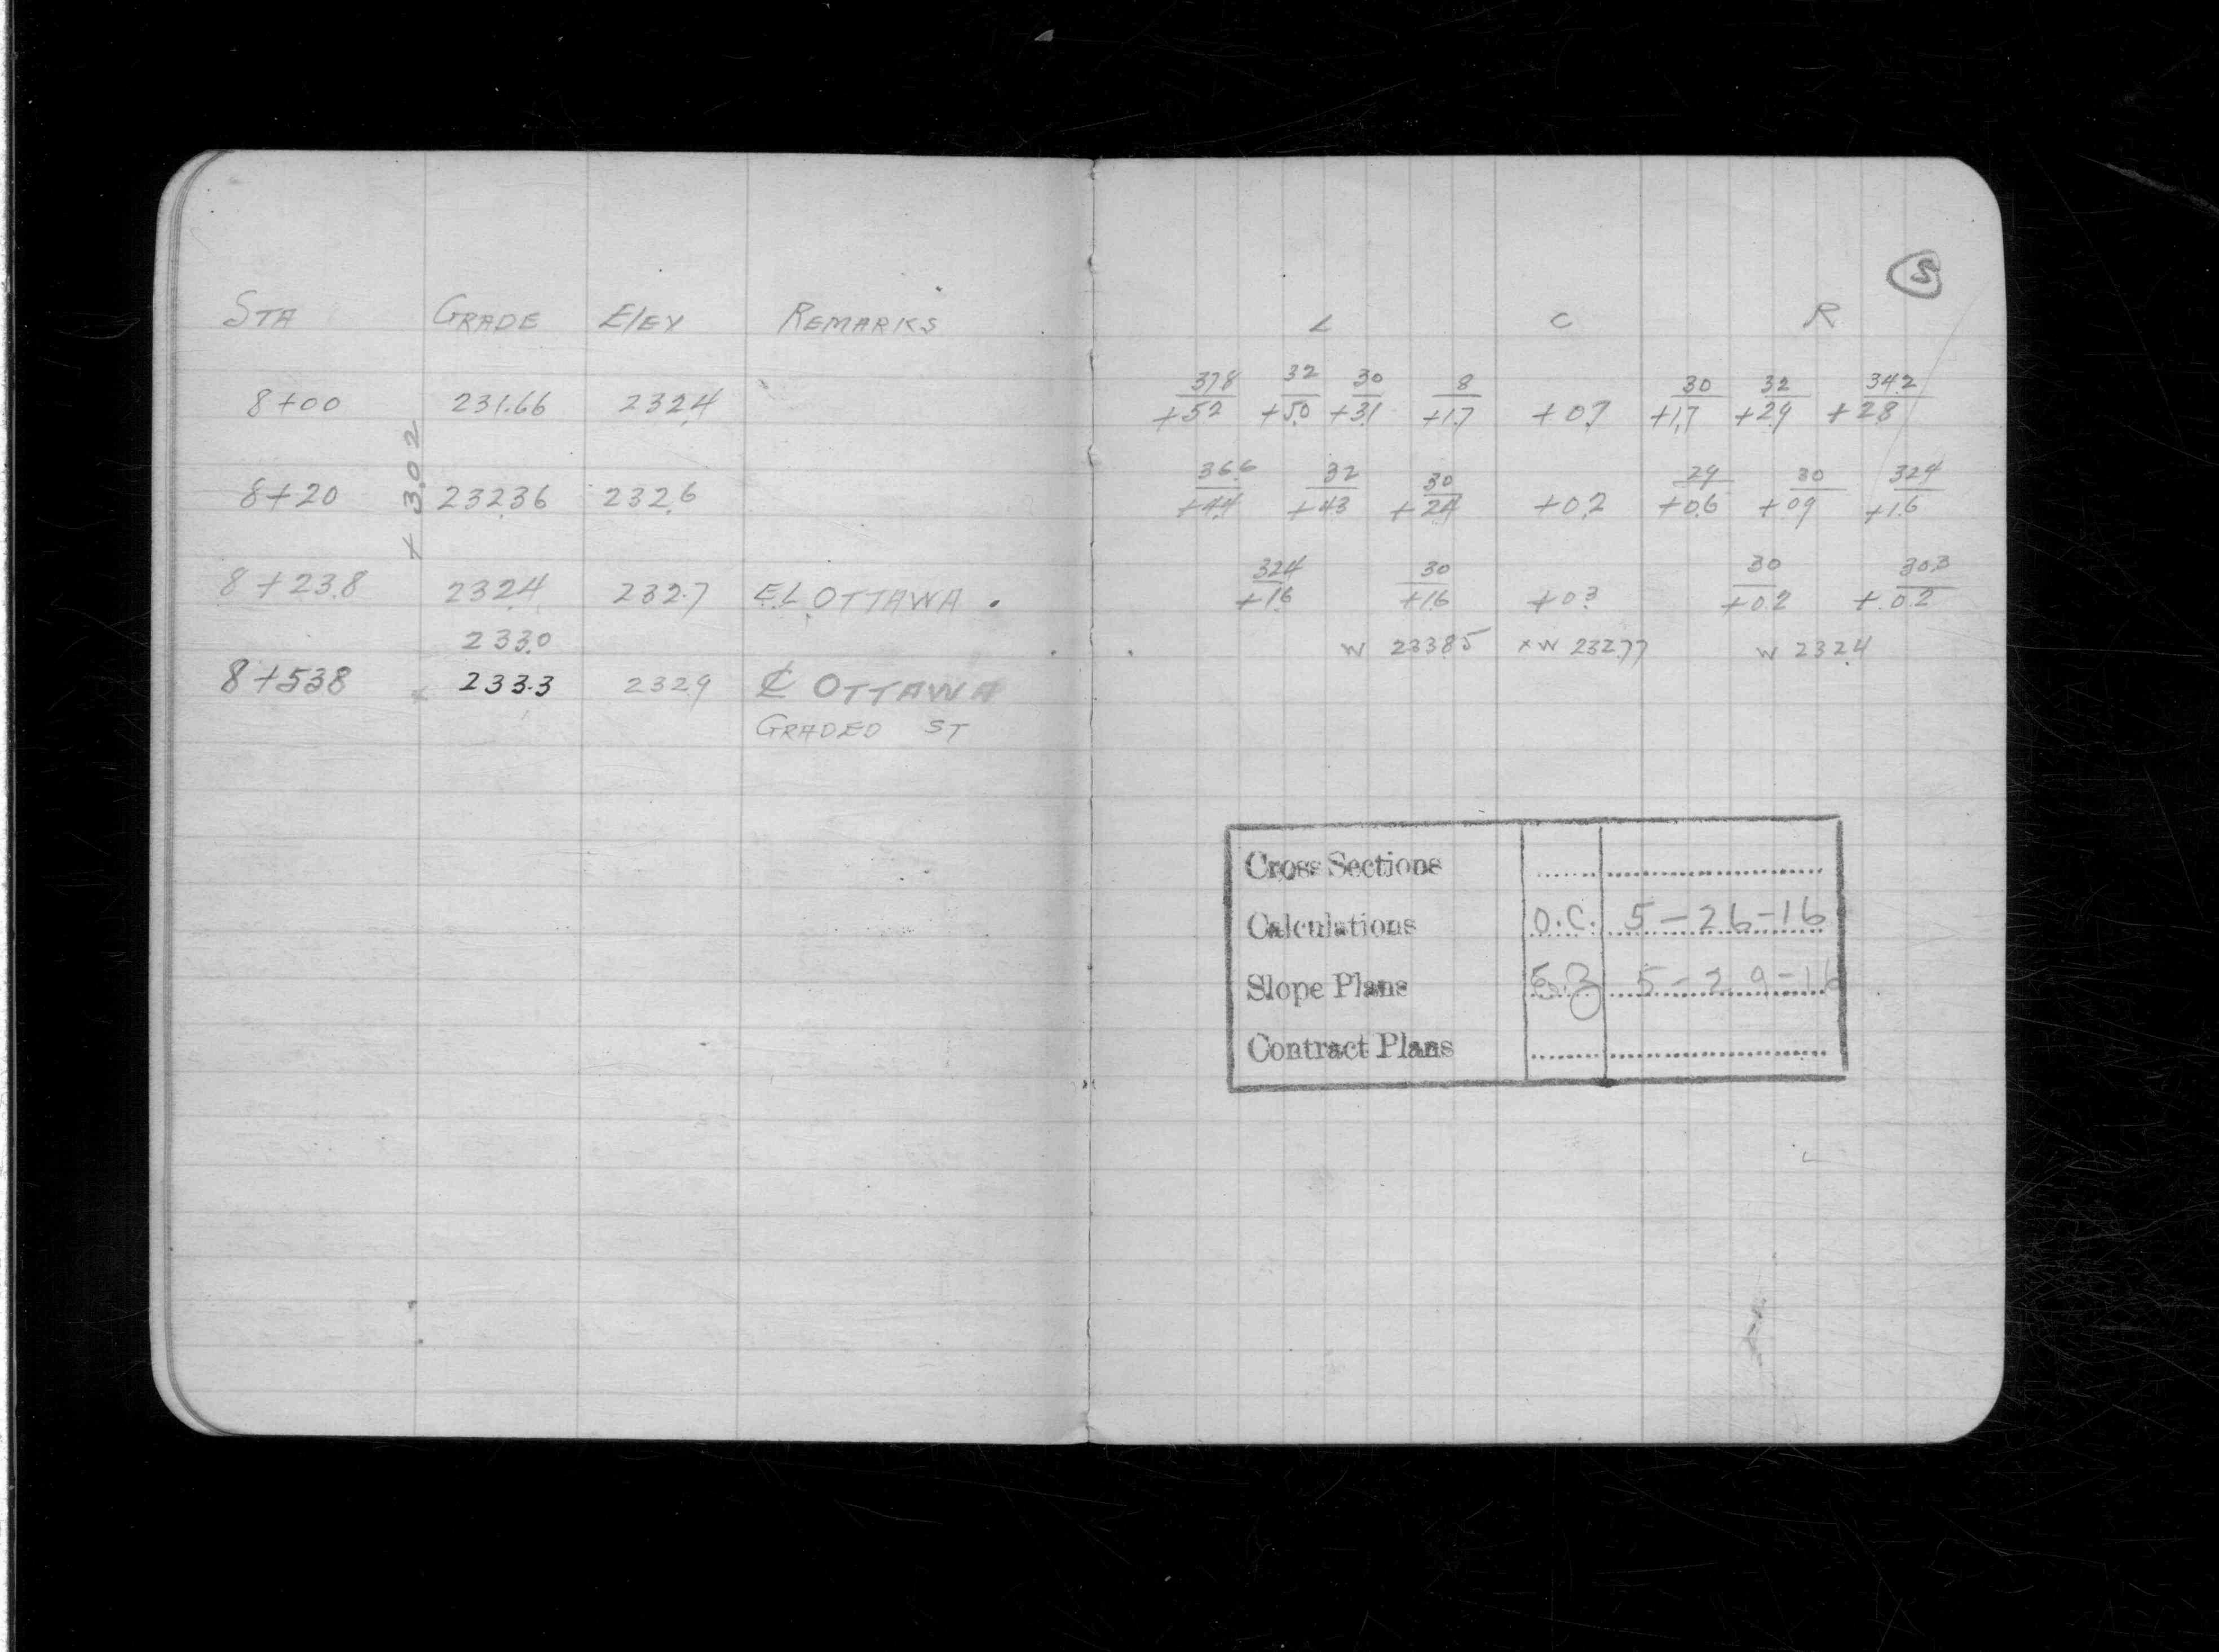 STA GRADE ELEV REMARKS
8+00 231.66 232.4
+3.02
8+20 232.36 232.6
8+23.8 232.4 232.7 E.L OTTAWA.
233.0
8+53.8 233.3 232.9 ℄ OTTAWA
GRADED ST
5
L C R
37.8 32 30 8 30 32 34.2
+5.2 +5.0 +3.1 +1.7 +0.7 +1.7 +2.9 +2.8
36.6 32 30 29 30 32.4
+4.4 +4.3 +2.4 +0.2 +0.6 +0.9 +1.6
32.4 30 30 30.3
+1.6 +1.6 +0.3 +0.2 +0.2
W 233.85 xW 232.77 W 232.4
Cross Sections
Calculations O.C. 5-26-16
Slope Plans 5-29-16
Contract Plans